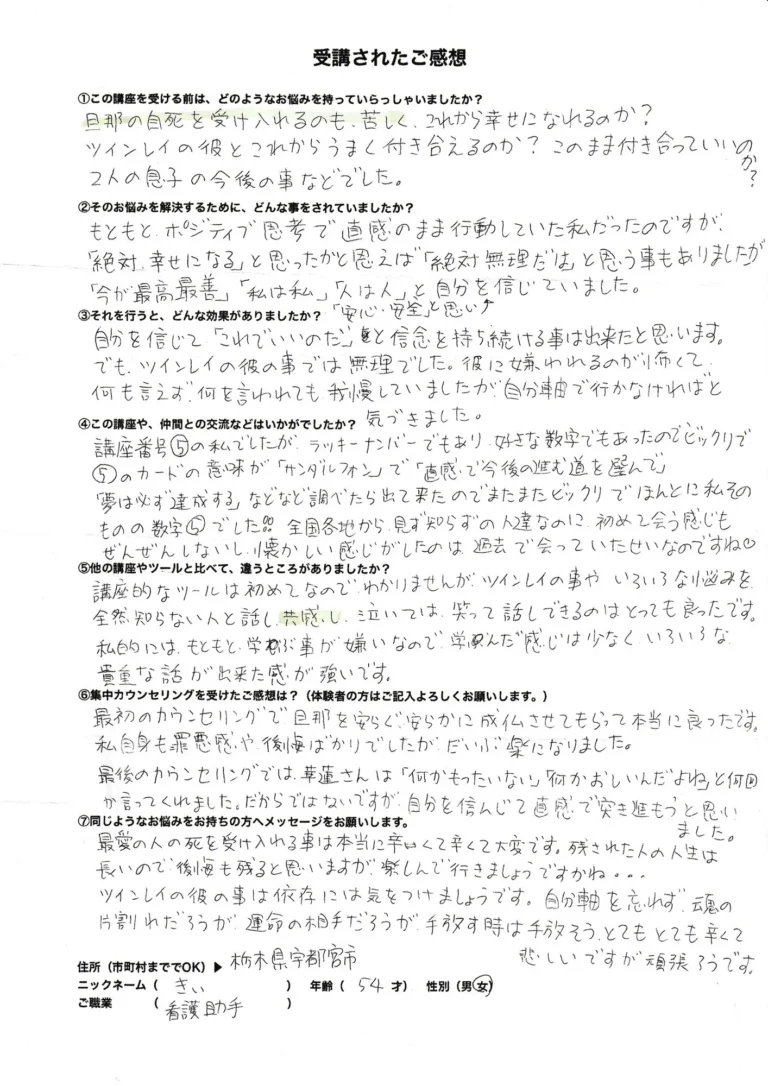 受講されたご感想
①この講座を受ける前は、どのようなお悩みを持っていらっしゃいましたか？
旦那の自死を受け入れるのも、苦しく、これから幸せになれるのか？
ツインレイの彼とこれからうまく付き合えるのか？このまま付き合っていいのか？
2人の息子の今後の事などでした。
②そのお悩みを解決するために、どんな事をされていましたか？
もともと、ポジティブ思考で直感のまま行動していた私だったのですが、
「絶対、幸せになる」と思ったかと思えば「絶対無理だは」と思う事もありましたが
「今が最高最善」「私は私」「人は人」と自分を信じていました。
「安心・安全」と思い↑
③それを行うと、どんな効果がありましたか？
自分を信じて「これでいいのだ」と信念を持ち続ける事は出来たと思います。
でも、ツインレイの彼の事では無理でした。彼に嫌われるのが怖くて、
何も言えず、何を言われても我慢していましたが、自分軸で行かなければと
気づきました。
④この講座や、仲間との交流などはいかがでしたか？
講座番号⑤の私でしたが、ラッキーナンバーでもあり、好きな数字でもあったのでビックリで
⑤のカードの意味が「サンダルフォン」で「直感で今後の進む道を選んで」
「夢は必ず達成する」などなど調べたら出て来たのでまたまたビックリでほんとに私その
ものの数字⑤でした!! 全国各地から、見ず知らずの人達なのに、初めて会う感じも
ぜんぜんしないし、懐かしい感じがしたのは、過去で会っていたせいなのですね♡
⑤他の講座やツールと比べて、違うところがありましたか？
講座的なツールは初めてなので、わかりませんが、ツインレイの事や、いろいろな悩みを
全然、知らない人と話し、共感し、泣いては、笑って話しできるのはとっても良ったです。
私的には、もともと、学ぶ事が嫌いなので、学んだ感じは少なく、いろいろな
貴重な話が出来た感が強いです。
⑥集中カウンセリングを受けたご感想は？（体験者の方はご記入よろしくお願いします。）
最初のカウンセリングで旦那を安らぐ安らかに成仏させてもらって本当に良ったです。
私自身も罪悪感や、後悔ばかりでしたが、だいぶ楽になりました。
最後のカウンセリングでは、華蓮さんは「何かもったいない」「何かおしいんだよね」と何回
か言ってくれました。だからではないですが、自分を信んじて直感で突き進もうと思い
ました。
⑦同じようなお悩みをお持ちの方へメッセージをお願いします。
最愛の人の死を受け入れる事は本当に辛くて辛くて大変です。残された人の人生は
長いので、後悔も残ると思いますが、楽しんで行きましょうですかね・・・
ツインレイの彼の事は依存には気をつけましょうです。自分軸を忘れず、魂の
片割れだろうが、運命の相手だろうが、手放す時は手放そう、とてもとても辛くて
悲しいですが頑張ろうです。
住所（市町村まででOK）▶ 栃木県宇都宮市
ニックネーム（ きい ） 年齢（ 54 才） 性別（男・女）
ご職業 （ 看護助手 ）